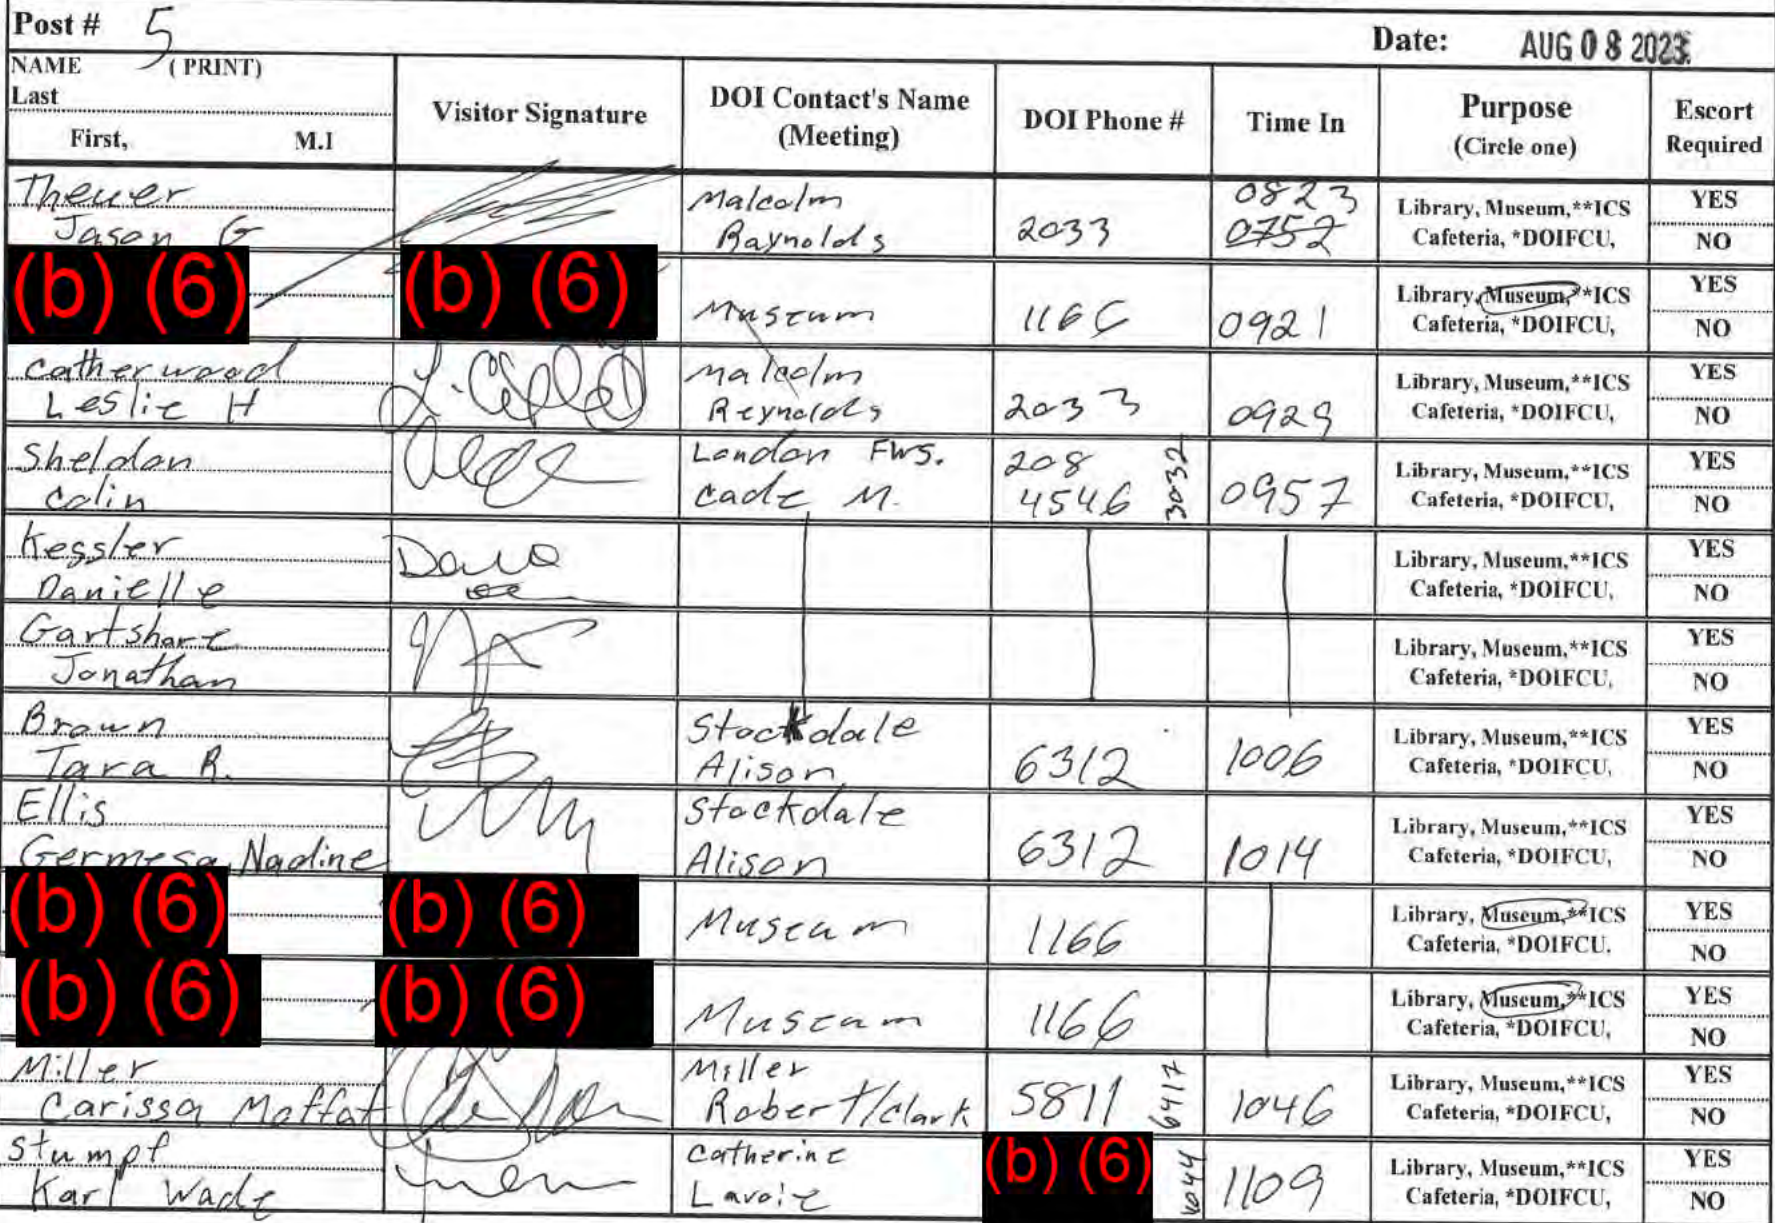 Post # 5 Date: AUG 08 2023
NAME (PRINT)
Last
First, M.I
Visitor Signature
DOI Contact's Name
(Meeting)
DOI Phone #
Time In
Purpose
(Circle one)
Escort
Required
Theuer
Jason G
Malcolm
Raynolds
2033
0823
0752
Library, Museum,**ICS
Cafeteria, *DOIFCU,
YES
NO
(b) (6)
(b) (6)
Museum
1166
0921
Library, Museum,**ICS
Cafeteria, *DOIFCU,
YES
NO
Catherwood
Leslie H
Malcolm
Reynolds
2033
0929
Library, Museum,**ICS
Cafeteria, *DOIFCU,
YES
NO
Sheldon
Colin
London FWS.
Cade M.
208
4546
3032
0957
Library, Museum,**ICS
Cafeteria, *DOIFCU,
YES
NO
Kessler
Danielle
Library, Museum,**ICS
Cafeteria, *DOIFCU,
YES
NO
Gartshore
Jonathan
Library, Museum,**ICS
Cafeteria, *DOIFCU,
YES
NO
Brown
Tara R.
Stockdale
Alison
6312
1006
Library, Museum,**ICS
Cafeteria, *DOIFCU,
YES
NO
Ellis
Germesa Nadine
Stockdale
Alison
6312
1014
Library, Museum,**ICS
Cafeteria, *DOIFCU,
YES
NO
(b) (6)
(b) (6)
Museum
1166
Library, Museum,**ICS
Cafeteria, *DOIFCU.
YES
NO
(b) (6)
(b) (6)
Museum
1166
Library, Museum,**ICS
Cafeteria, *DOIFCU,
YES
NO
Miller
Carissa Moffat
Miller
Robert/Clark
5811
6417
1046
Library, Museum,**ICS
Cafeteria, *DOIFCU,
YES
NO
Stumpf
Karl Wade
Catherine
Lavoie
(b) (6)
1109
Library, Museum,**ICS
Cafeteria, *DOIFCU,
YES
NO